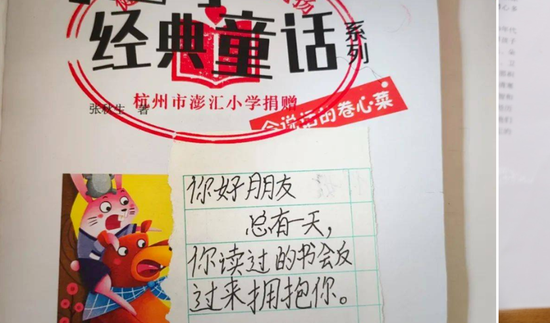 经典童话
系列
杭州市澎汇小学捐赠
张秋生 著
会说话的卷心菜
你好朋友
总有一天，
你读过的书会反
过来拥抱你。